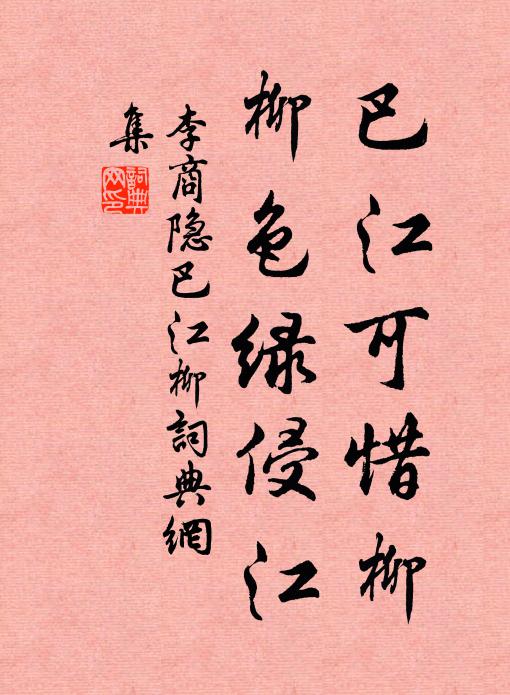 巴江可惜柳
柳色绿侵江
李商隐巴江柳詞典網
集
詞典网印